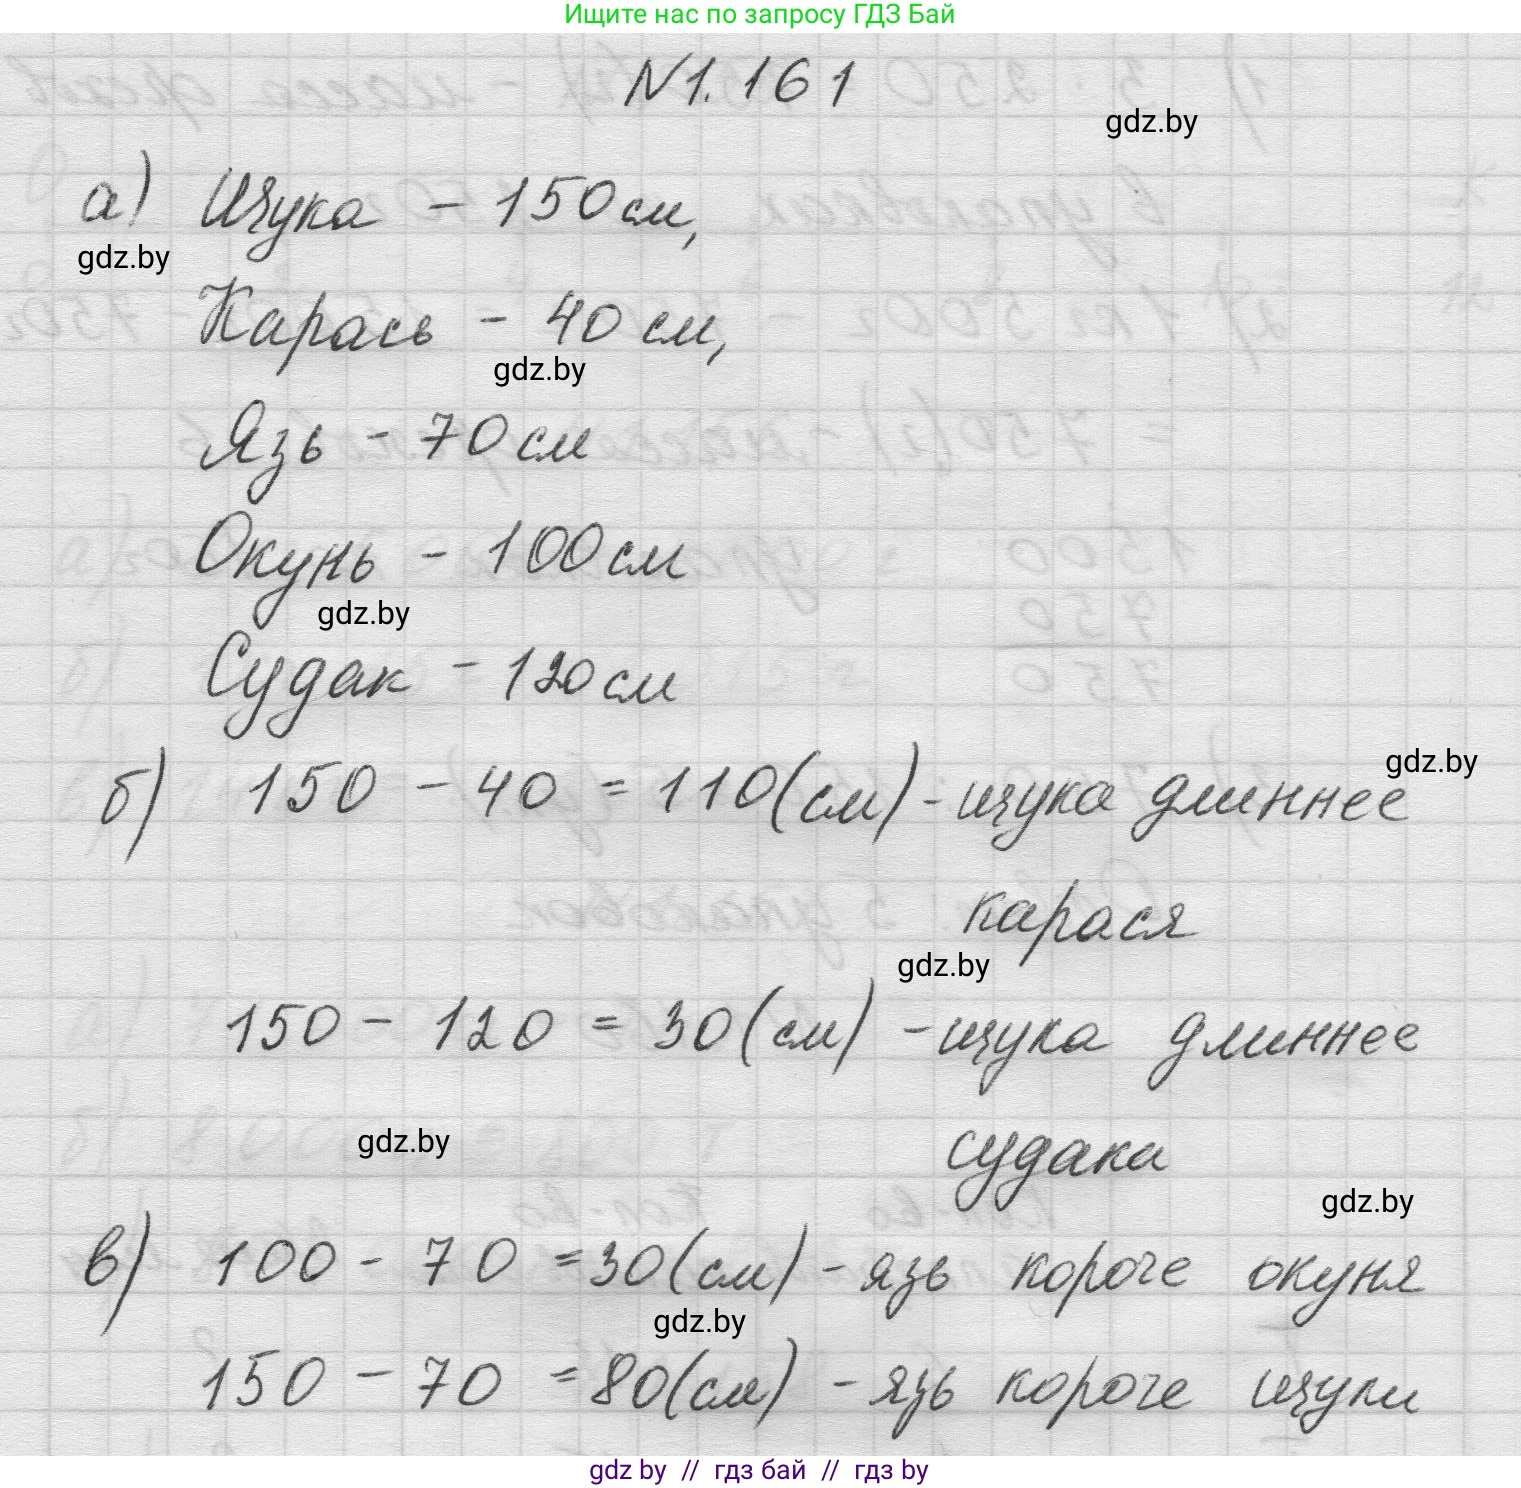 Ищите нас по запросу ГДЗ Бай
№1.161
gdz.by
а) Щука - 150 см,
gdz.by
Карась - 40 см,
gdz.by
Язь - 70 см
Окунь - 100 см
gdz.by
Судак - 120 см
gdz.by
б) 150 - 40 = 110 (см) - щука длиннее
карася
gdz.by
150 - 120 = 30 (см) - щука длиннее
gdz.by
судака
gdz.by
в) 100 - 70 = 30 (см) - язь короче окуня
gdz.by
150 - 70 = 80 (см) - язь короче щуки
gdz by // гдз бай // гдз by